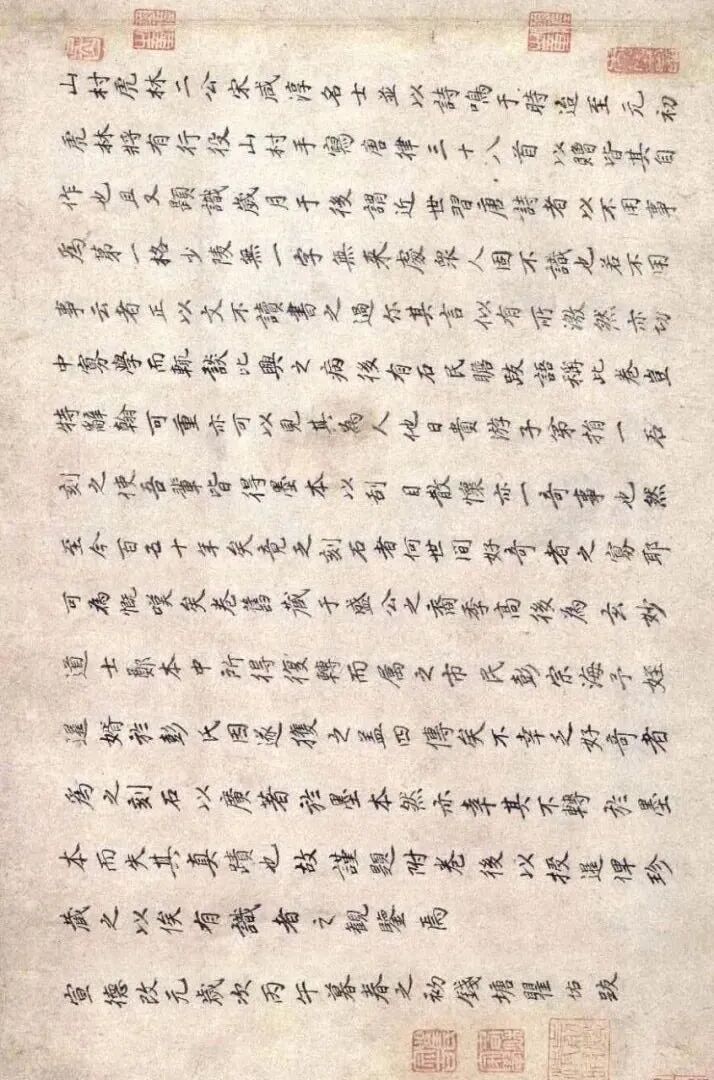 山村虎林二公宋咸淳名士並以詩鳴于時迨至元初
虎林將有行役山村手寫唐律三十八首以贈皆其自
作也且又題識歲月于後謂近世習唐詩者以不用事
為第一格少陵無一字無来處衆人固不識也若不用
事云者正以文不讀書之過尔其言似有所激然亦切
中寡學而輒談比興之病後有石民瞻跋語稱此卷豈
特辭翰可重亦可以見其為人他日貴游子弟捐一石
刻之使吾輩皆得墨本以刮目散懷亦一奇事也然
至今百五十年矣竟乏刻石者何世間好奇者之寡耶
可為慨嘆矣卷舊藏于盛公之裔季高後為玄妙
道士鄭本中所得復轉而属之市民彭宗海予姪
暹婿於彭氏因遂獲之盖四傳矣不幸乏好奇者
為之刻石以廣著於墨本然亦幸其不轉於墨
本而失其真蹟也故謹題附卷後以授暹俾珍
藏之以俟有識者之観鑒焉
宣德改元歲次丙午暮春之初錢塘瞿佑跋